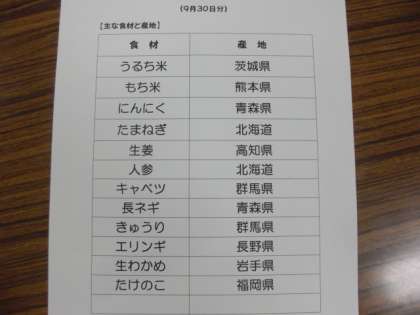 (9月30日分)
【主な食材と産地】
食材 産地
うるち米 茨城県
もち米 熊本県
にんにく 青森県
たまねぎ 北海道
生姜 高知県
人参 北海道
キャベツ 群馬県
長ネギ 青森県
きゅうり 群馬県
エリンギ 長野県
生わかめ 岩手県
たけのこ 福岡県